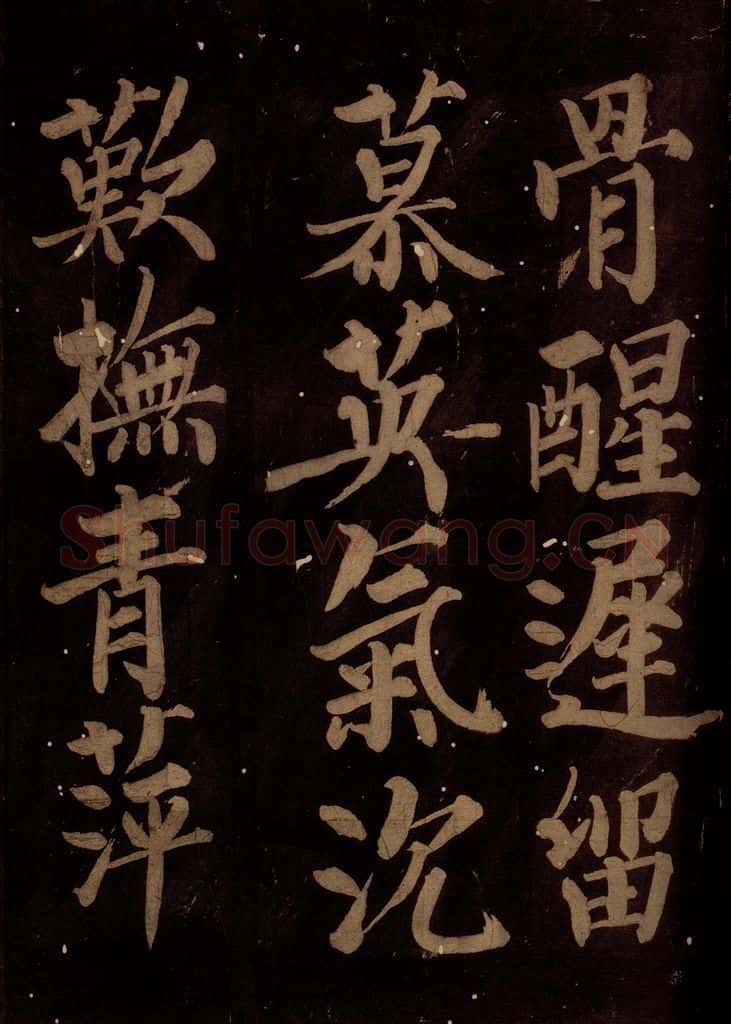 骨醒遲留
慕英氣沉
歎撫青萍
Shufawang.CN